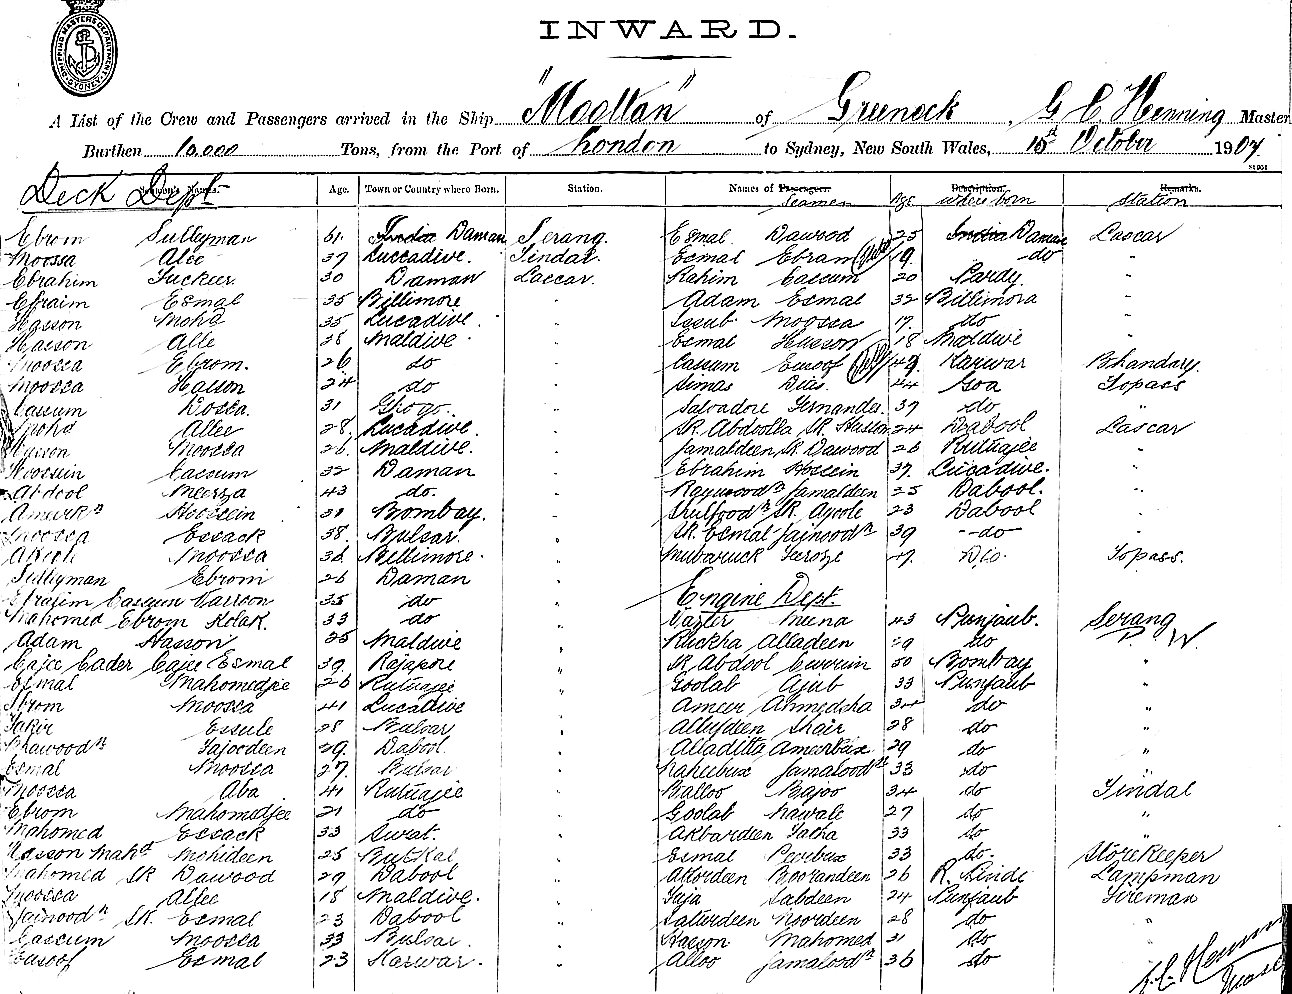 SHIPPING MASTERS DEPARTMENT SYDNEY
INWARD.
A List of the Crew and Passengers arrived in the Ship "Mooltan" of Greenock, G C Henning Master
Burthen 10,000 Tons, from the Port of London to Sydney, New South Wales, 15 October 1907.
Deck Dept
Age. Town or Country where Born. Station. Names of Passengers Seamen Age Description. where born Remarks. Station
Ebrom Sulleyman 61. India Daman Serang. Esmal Dawood 25 India Daman Lascar
Moosa Alee 37 Luccadive. Tindal. Esmal Ebram 19 do "
Ebrahim Fuckeer 30 Daman Lascar. Rahim Cassum 20 Pardy "
Efraim Esmal 35 Billimore " Adam Esmal 32 Billimora "
Hasson Mohd 35 Lucadive. " Moosca 17. do "
Hasson Alle 28 Maldive. " Esmal Husson 18 Maldive "
Moosca Ebrom. 26 do " Cassum Eusoof 49 Karwar Bhandary
Moosca Hasson 24 do " Simas Dias 44 Goa Topass
Cassum Dosca. 31 Grogo. " Salvadore Fernandes. 37 do "
Mohd Allee 28. Lucadive. " SK. Abdoolla SK. 24 Dabool Lascar
Moosca 26. Maldive. " Jamaldeen SK. Dawood 26 Rutnagee "
Hoossein Cassum 32 Daman " Ebrahim Hossein 37 Lucadive. "
Abdool Meerza 43 do. " Jamaldeen 25 Dabool. "
Hoossein 31 Bombay. " SK. 23 Dabool "
Moosca Essack 38. Bulsar. " SK. Esmal Jainoodn 39 do "
Moosca 38 Billimore. " Mubaruck Feroze 47. Dio. Topass.
Sulleyman Ebrom 26 Daman "
Efraim Cassum 35 do " Engine Dept.
Mahomed Ebrom 33 do " Meena 43 Punjaub. Serang
Adam Hasson 25 Maldive " Ruckha Alladeen 29 do P. W.
Cajee Cader Cajee Esmal 39. Rajapore " SK Abdool Curreem 50 Bombay "
Esmal Mahomedjee 26 Rutnagee " Goolab Ajub 33 Punjaub "
Ebrom Moosca 41 Lucadive " Ameer Ahmedsha 34 do "
Fakir Essule 28 Bulsar " Allydeen Shair 28 do "
Dawoodn Tajoodeen 29. Dabool " Alladitta Ameerbux 29 do "
Esmal Moosca 27. Bulsar " Jamaloodn 33 do "
Moosca Aba 41 Rutnagee " Balloo Bajoo 34 do Tindal
Ebrom Mahomedjee 21 do " Goolab Nawab 27 do "
Mahomed Essack 33 Swat. " Akbardeen 33 do "
Hasson Mahd Mohideen 25 Butkal " Esmal Peerbux 33 do. Storekeeper
Mahomed SK Dawood 29 Dabool " Akbrdeen Boorandeen 26 R. Sinde Lampman
Moosca Allee 18 Maldive. " Sabdeen 24 Punjaub Fireman
Jainoodn SK. Esmal 23 Dabool " Noordeen 28 do "
Cassum Moosca 33 Bulsar. " Hasson Mahomed 31 do "
Eusoof Esmal 23 Karwar. " Alloo Jamaloodn 36 do
G.C. Henning
Master